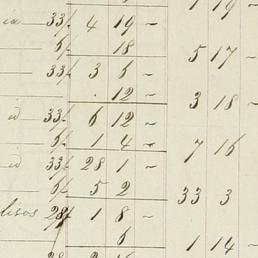 1 19 -
ia 33/. 4 19 -
6/. 18
5 17 -
33/. 3 6 -
. 12 -
3 18 -
id 33/. 6 12 -
6/. 1 4 -
7 16
id 33/. 28 1 -
6/. 5 2
33 3
lisos 28/. 1 8 -
6
1 14 -